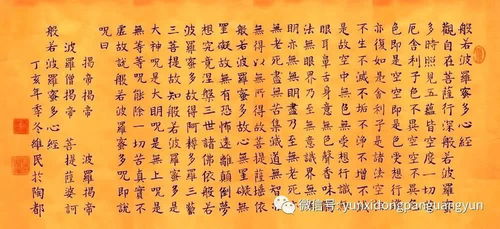 般若波羅蜜多心經
觀自在菩薩行深般若波羅蜜
多時照見五蘊皆空度一切苦
厄舍利子色不異空空不異色
色即是空空即是色受想行識
亦復如是舍利子是諸法空相
不生不滅不垢不淨不增不減
是故空中無色無受想行識無
眼耳鼻舌身意無色聲香味觸
法無眼界乃至無意識界無無
明亦無無明盡乃至無老死亦
無老死盡無苦集滅道無智亦
無得以無所得故菩提薩埵依
般若波羅蜜多故心無罣礙無
罣礙故無有恐怖遠離顛倒夢
想究竟涅槃三世諸佛依般若
波羅蜜多故得阿耨多羅三藐
三菩提故知般若波羅蜜多是
大神呪是大明呪是無上呪是
無等等呪能除一切苦真實不
虛故說般若波羅蜜多呪即說
呪曰
揭帝揭帝 波羅揭帝
波羅僧揭帝 菩提薩婆訶
般若波羅蜜多心經
丁亥年季冬維民於陶都
微信号: yunxidongpanguangyun